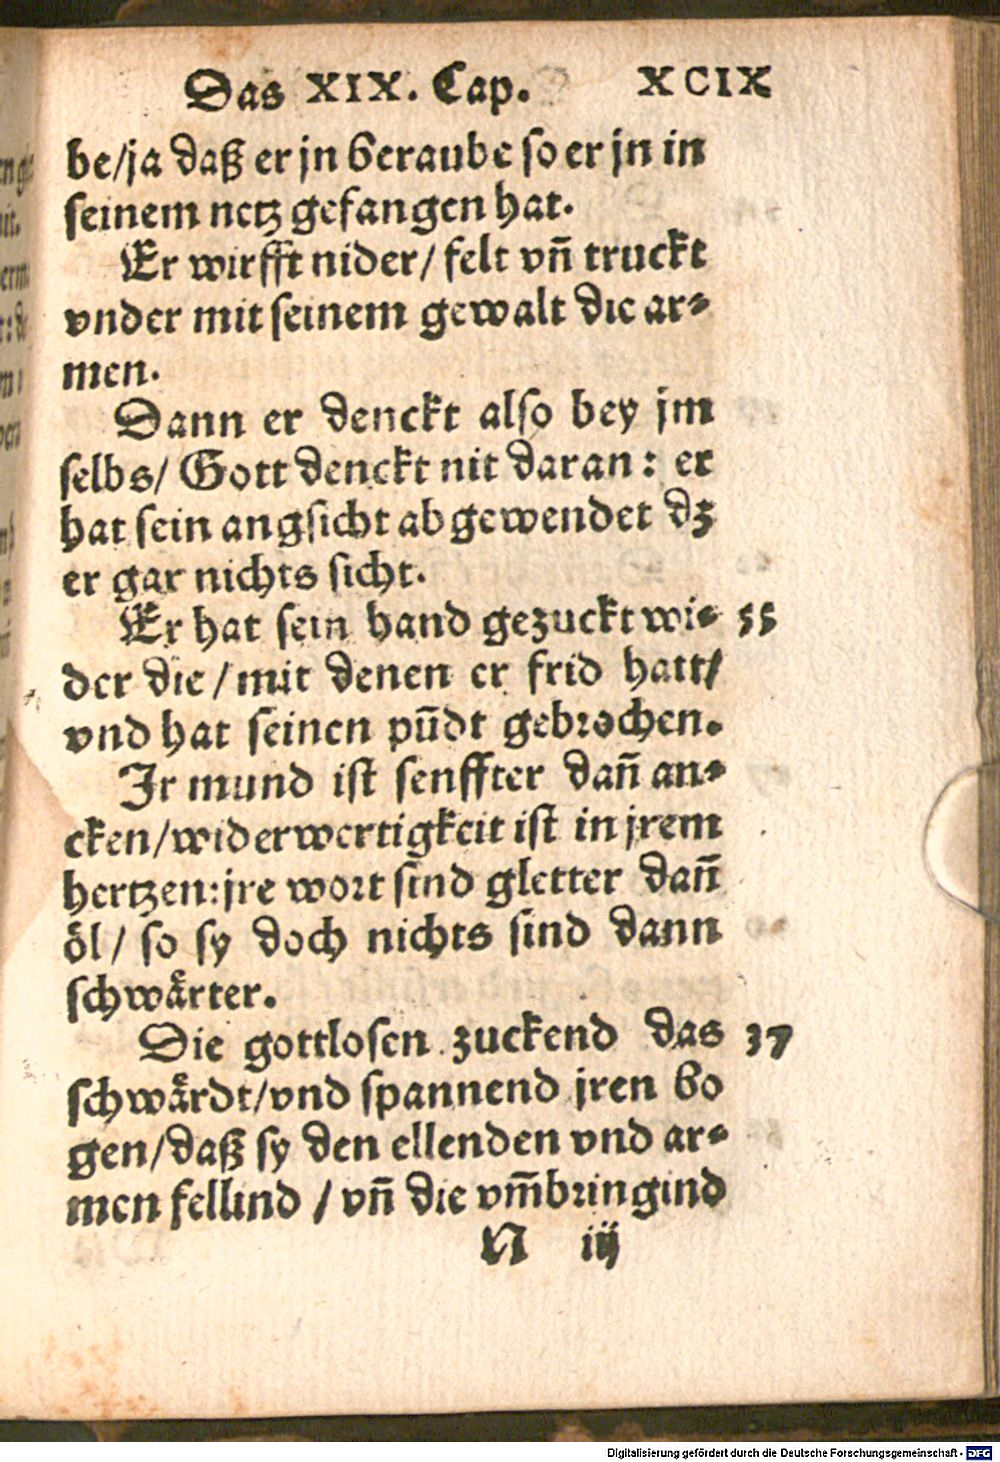 Das XIX. Cap. XCIX
be/ja daß er jn beraube so er jn in
seinem netz gefangen hat.
Er wirfft nider/ felt vñ truckt
vnder mit seinem gewalt die ar⸗
men.
Dann er denckt also bey jm
selbs/ Gott denckt nit daran: er
hat sein angsicht abgewendet dz
er gar nichts sicht.
Er hat sein hand gezuckt wi⸗ 55
der die/mit denen er frid hatt/
vnd hat seinen pũdt gebrochen.
Jr mund ist senffter dañ an⸗
cken/widerwertigkeit ist in jrem
hertzen:jre wort sind gletter dañ
öl/ so sy doch nichts sind dann
schwaͤrter.
Die gottlosen zuckend das 37
schwaͤrdt/vnd spannend jren bo
gen/daß sy den ellenden vnd ar⸗
men fellind/vñ die vm̃bringind
N iij
Digitalisierung gefördert durch die Deutsche Forschungsgemeinschaft - DFG